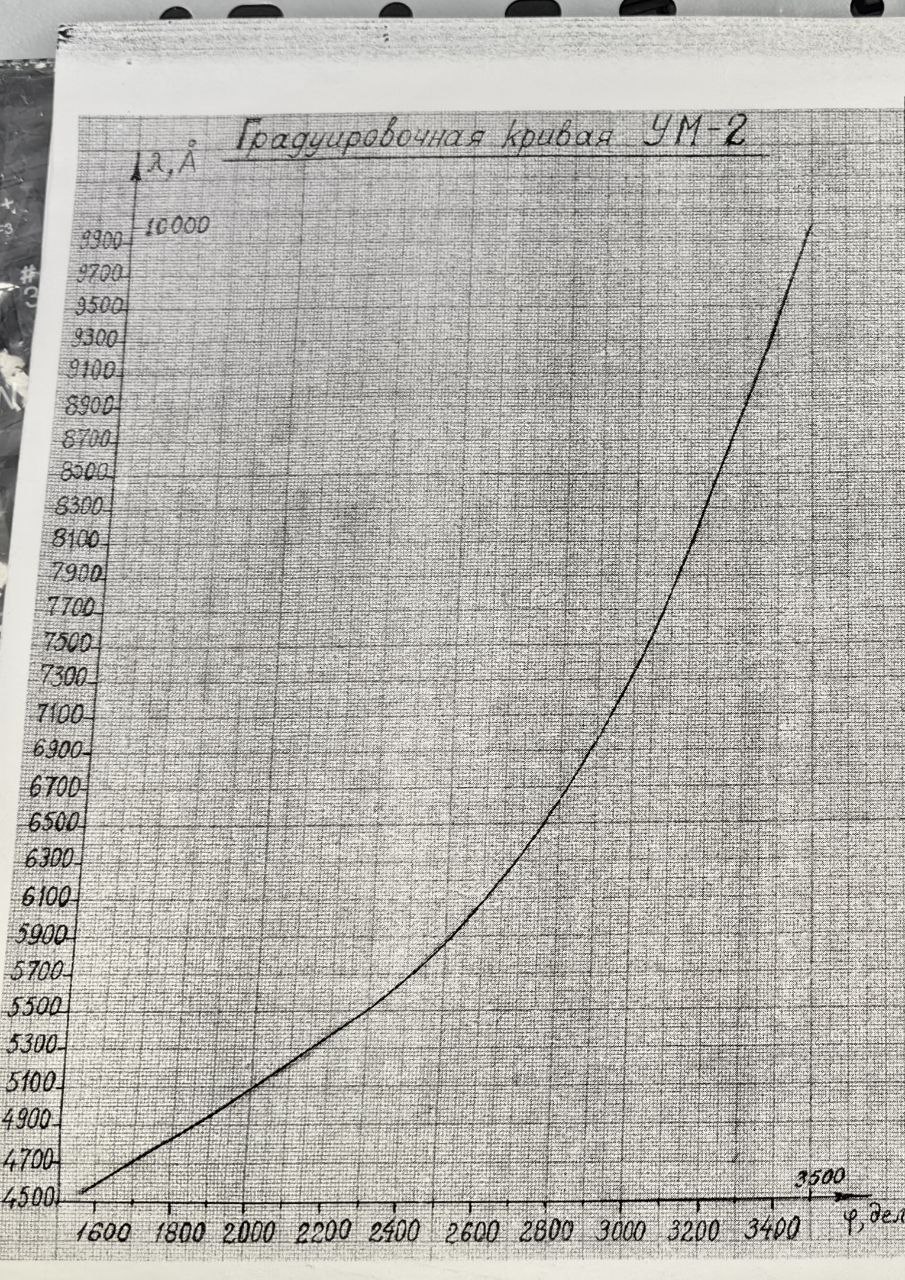 Градуировочная кривая УМ-2
λ, Å
10000
9900
9700
9500
9300
9100
8900
8700
8500
8300
8100
7900
7700
7500
7300
7100
6900
6700
6500
6300
6100
5900
5700
5500
5300
5100
4900
4700
4500
3500
1600 1800 2000 2200 2400 2600 2800 3000 3200 3400 φ, дел
#
3